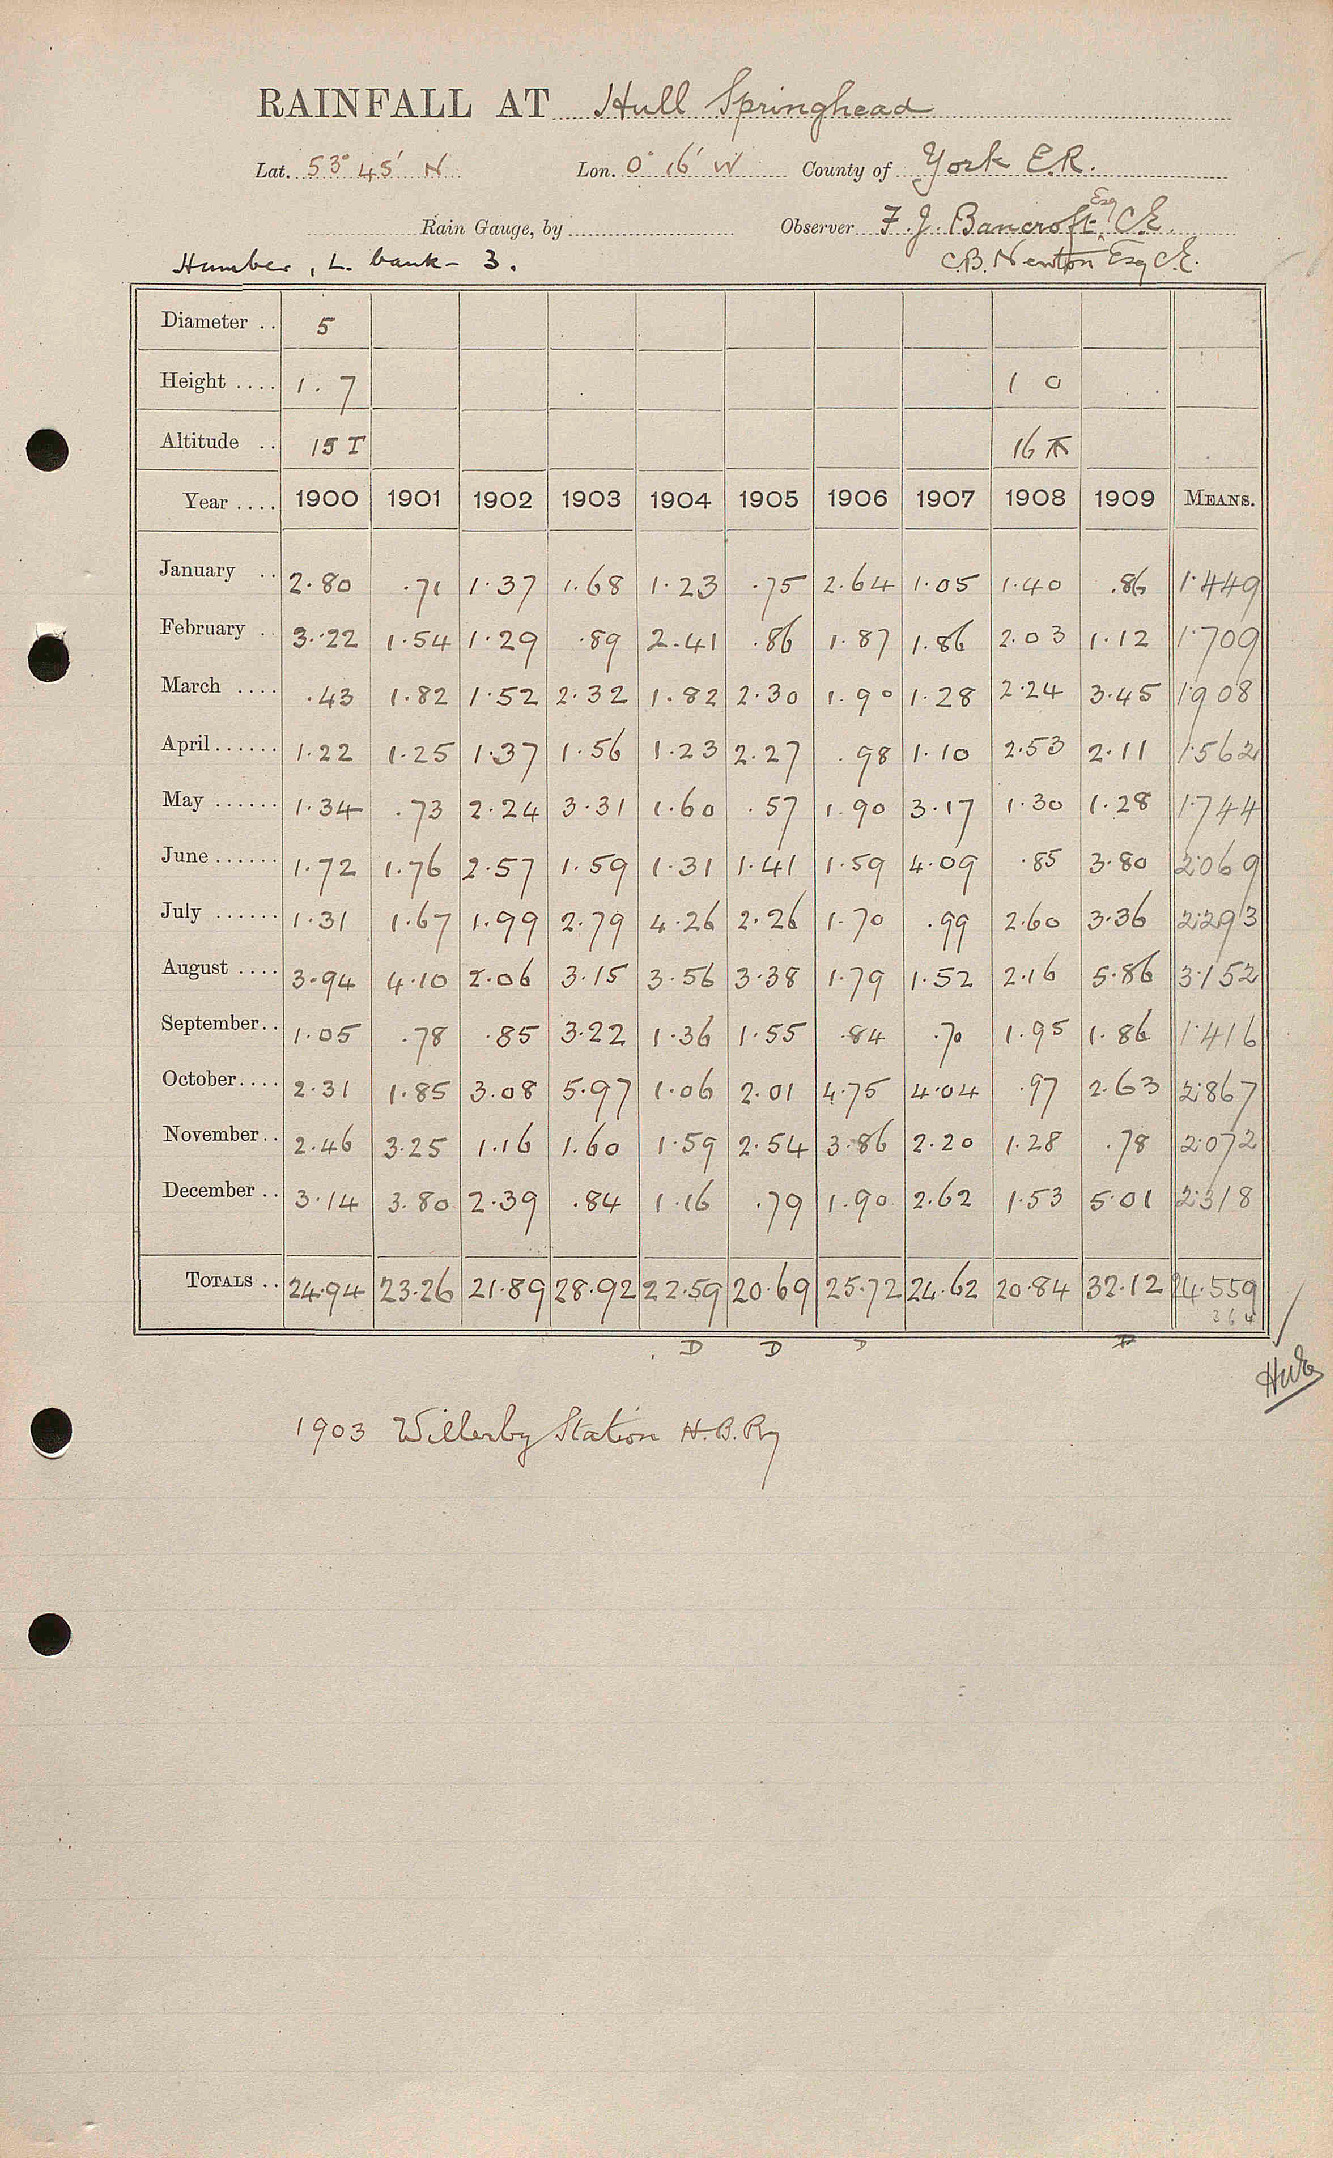 RAINFALL AT Hull Springhead
Lat. 53° 45' N Lon. 0° 16' W County of York E.R.
Rain Gauge, by Observer F. J. Bancroft Esq C.E.
Humber, L. bank - 3. C.B. Newton Esq C.E.
Diameter .. 5
Height .... 1. 7 1 0
Altitude .. 15 T 16
Year .... 1900 1901 1902 1903 1904 1905 1906 1907 1908 1909 MEANS.
January .. 2.80 .71 1.37 1.68 1.23 .75 2.64 1.05 1.40 .86 1.449
February .. 3.22 1.54 1.29 .89 2.41 .86 1.87 1.86 2.03 1.12 1.709
March .... .43 1.82 1.52 2.32 1.82 2.30 1.90 1.28 2.24 3.45 1.908
April...... 1.22 1.25 1.37 1.56 1.23 2.27 .98 1.10 2.53 2.11 1.562
May ...... 1.34 .73 2.24 3.31 1.60 .57 1.90 3.17 1.30 1.28 1.744
June ...... 1.72 1.76 2.57 1.59 1.31 1.41 1.59 4.09 .85 3.80 2.069
July ...... 1.31 1.67 1.99 2.79 4.26 2.26 1.70 .99 2.60 3.36 2.293
August .... 3.94 4.10 2.06 3.15 3.56 3.38 1.79 1.52 2.16 5.86 3.152
September.. 1.05 .78 .85 3.22 1.36 1.55 .84 .70 1.95 1.86 1.416
October.... 2.31 1.85 3.08 5.97 1.06 2.01 4.75 4.04 .97 2.63 2.867
November.. 2.46 3.25 1.16 1.60 1.59 2.54 3.86 2.20 1.28 .78 2.072
December .. 3.14 3.80 2.39 .84 1.16 .79 1.90 2.62 1.53 5.01 2.318
TOTALS .. 24.94 23.26 21.89 28.92 22.59 20.69 25.72 24.62 20.84 32.12 24.559
264
D D D D
1903 Willerby Station H.B.Ry